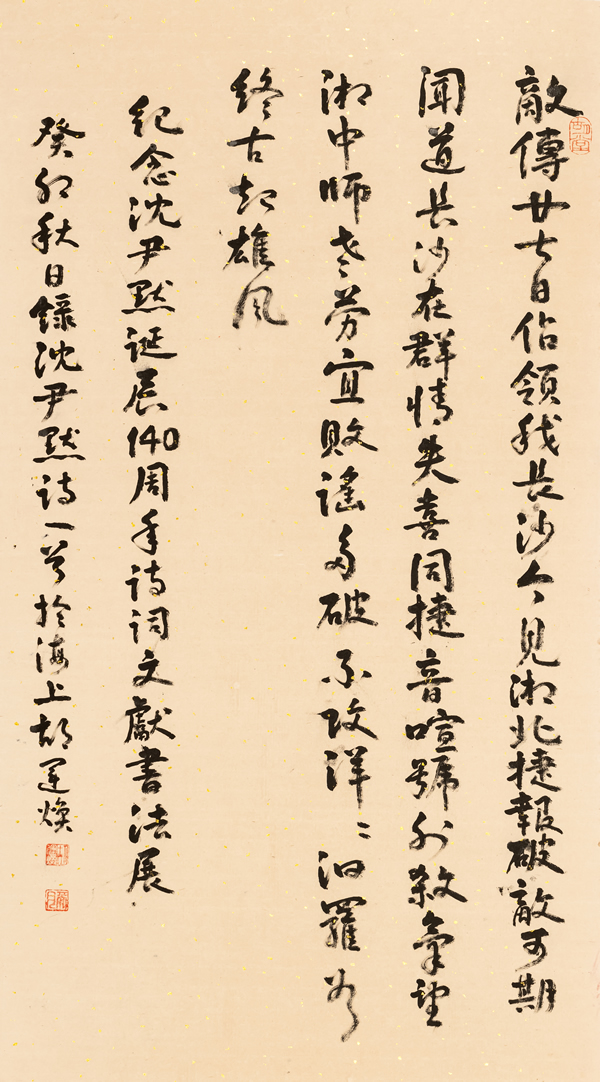 敵傳廿七日佔領我長沙今見湘北捷報破敵可期
聞道長沙在群情失喜同捷音喧號外殺氣望
湘中師老勞宜敗謠多破不攻洋〻汨羅水
終古起雄風
紀念沈尹默誕辰140周年詩詞文獻書法展
癸卯秋日錄沈尹默詩一首於海上胡運煥